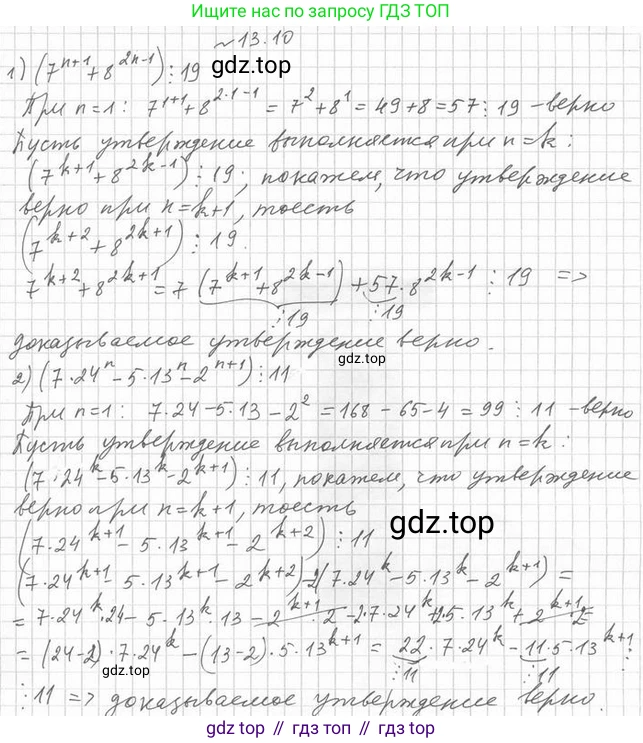 Ищите нас по запросу ГДЗ ТОП
№13.10
gdz.top
1) (7^{n+1} + 8^{2n-1}) ⋮ 19
При n=1: 7^{1+1} + 8^{2·1-1} = 7^2 + 8^1 = 49 + 8 = 57 ⋮ 19 - верно
Пусть утверждение выполняется при n=k:
(7^{k+1} + 8^{2k-1}) ⋮ 19, покажем, что утверждение
верно при n=k+1, тоесть
(7^{k+2} + 8^{2k+1}) ⋮ 19.
7^{k+2} + 8^{2k+1} = 7 (7^{k+1} + 8^{2k-1}) + 57·8^{2k-1} ⋮ 19 =>
⋮19 ⋮19
доказываемое утверждение верно.
gdz.top
2) (7·24^n - 5·13^n - 2^{n+1}) ⋮ 11
При n=1: 7·24 - 5·13 - 2^2 = 168 - 65 - 4 = 99 ⋮ 11 - верно
Пусть утверждение выполняется при n=k:
(7·24^k - 5·13^k - 2^{k+1}) ⋮ 11, покажем, что утверждение
верно при n=k+1, тоесть
gdz.top
(7·24^{k+1} - 5·13^{k+1} - 2^{k+2}) ⋮ 11
(7·24^{k+1} - 5·13^{k+1} - 2^{k+2}) - 2(7·24^k - 5·13^k - 2^{k+1}) =
= 7·24^k·24 - 5·13^k·13 - 2^{k+1}·2 - 2·7·24^k + 2·5·13^k + 2^{k+1}·2 =
= (24-2)·7·24^k - (13-2)·5·13^{k+1} = 22·7·24^k - 11·5·13^{k+1} ⋮
gdz.top
⋮11 ⋮11
⋮ 11 => доказываемое утверждение верно.
gdz.top // gdz.top // gdz.top